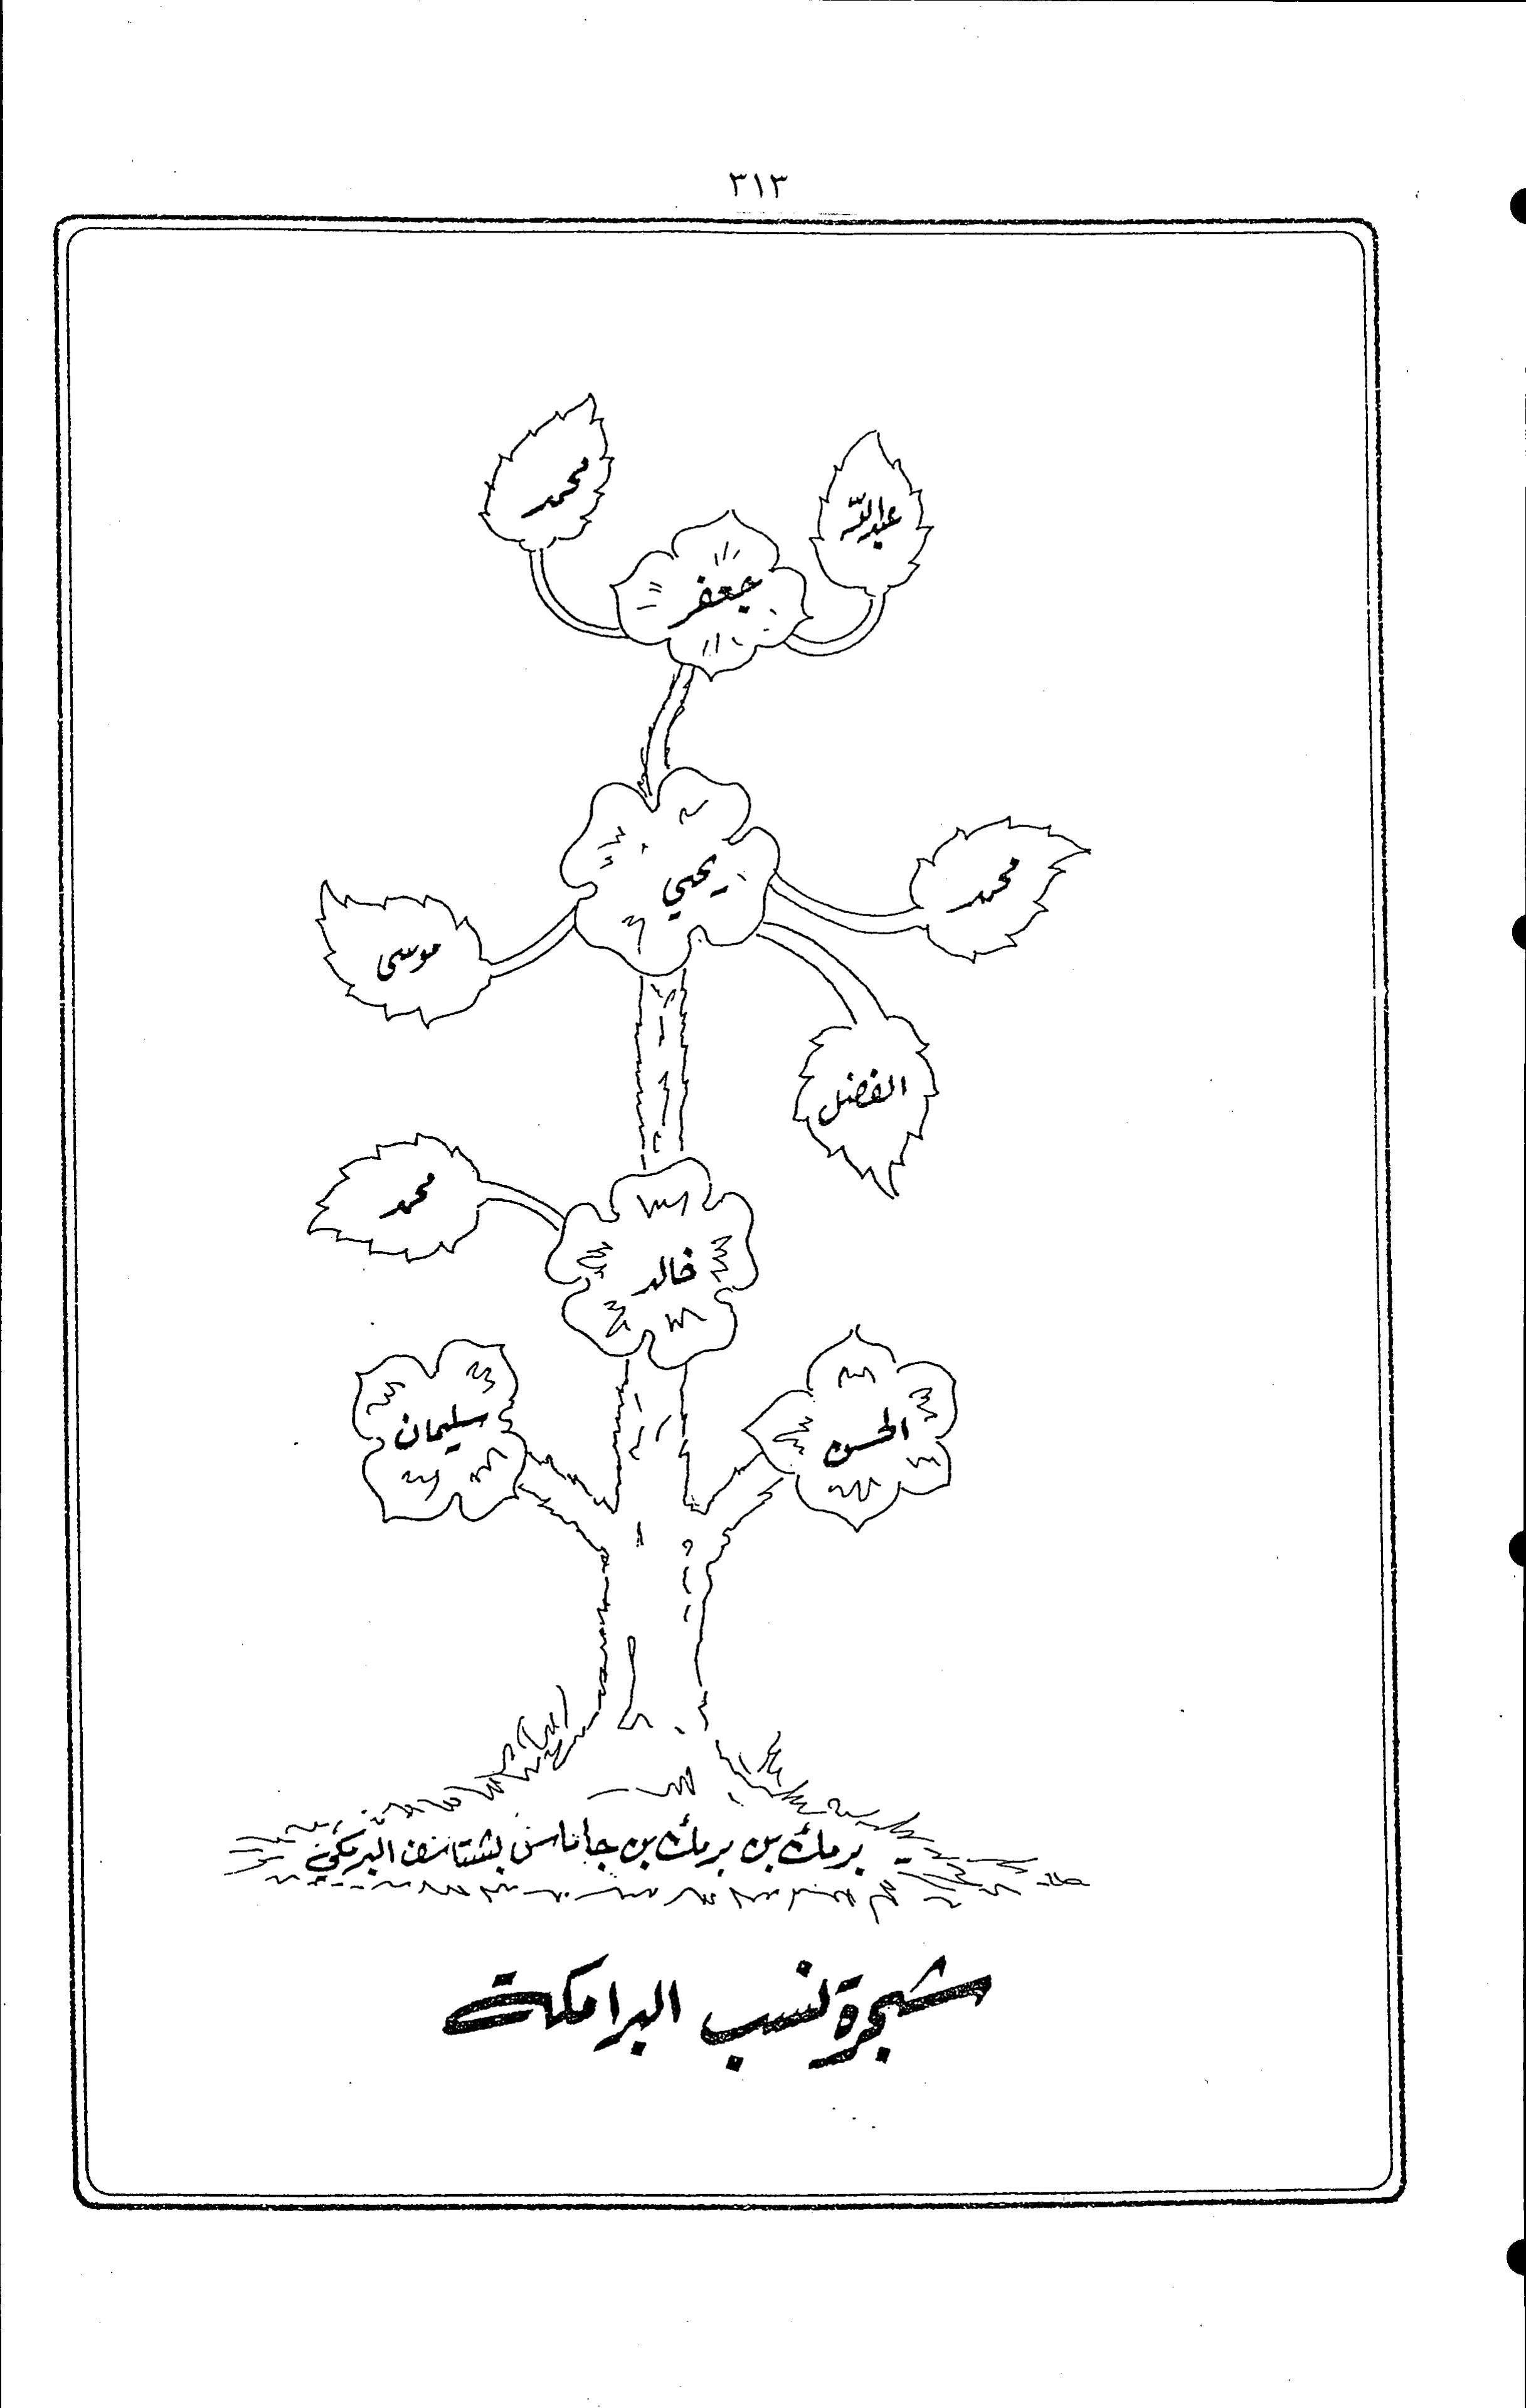 ٣١٣
محمد
عبدالله
جعفر
يحيي
محمد
موسى
الفضل
محمد
خالد
سليمان
الحسن
برمك بن برمك بن جاماس بن يشتاسف البرمكي
شجرة نسب البرامكة